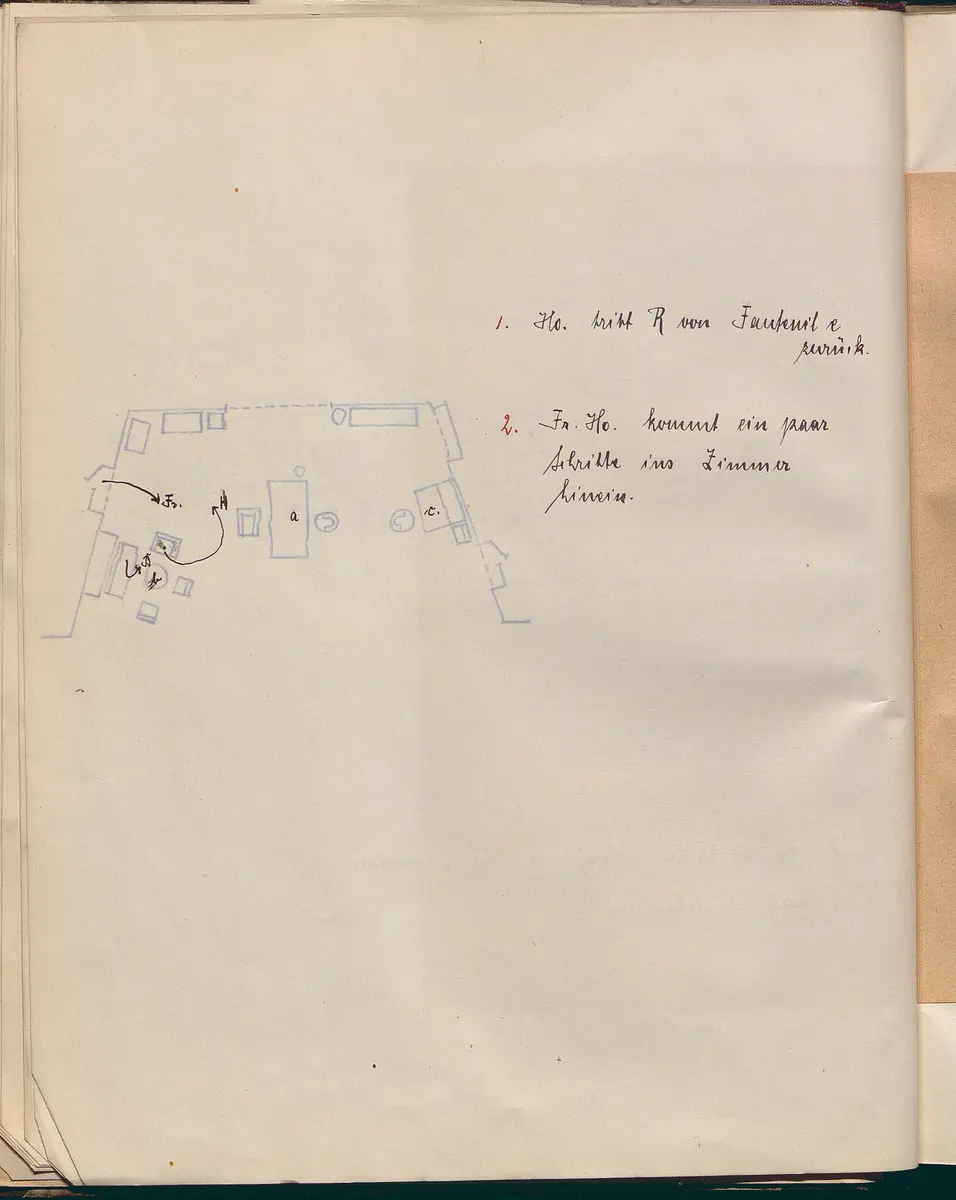 1. Ho. tritt R von Fauteuil c
zurück.
2. Fr. Ho. kommt ein paar
Schritte ins Zimmer
hinein.
Fr. H
a c.
b